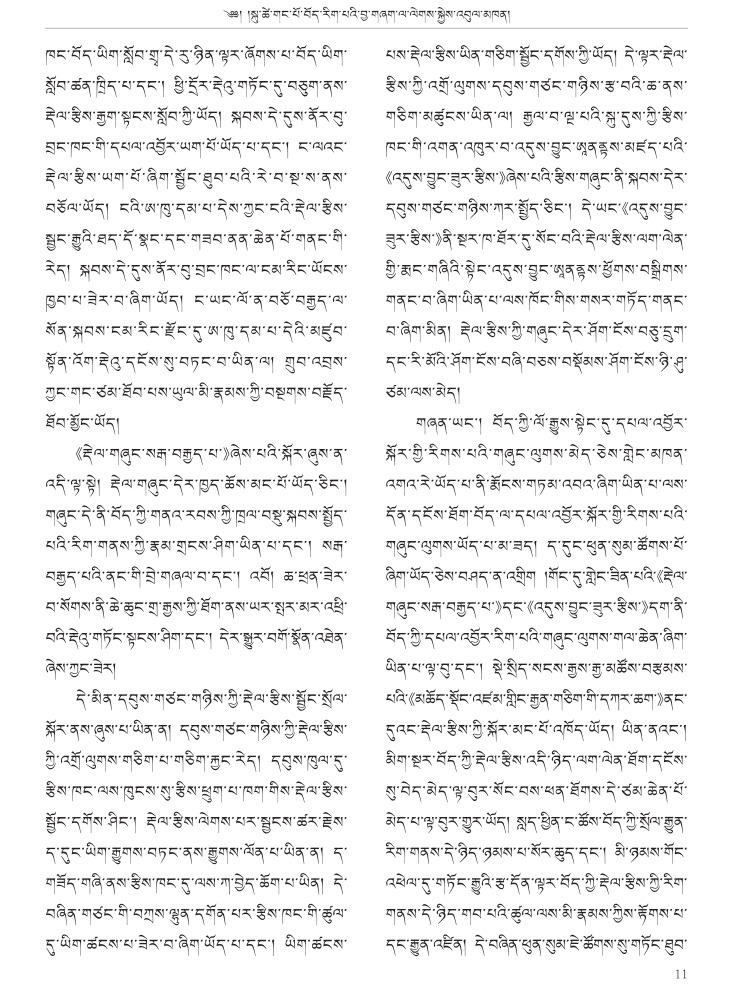 ༄༅། །སྐུ་ཚེ་གང་པོ་བོད་རིག་པའི་བྱ་གཞག་ལ་ལེགས་སྐྱེས་འབུལ་མཁན།
ཁང་བོད་ཡིག་སློབ་གྲྭ་དེ་རུ་ཉིན་ལྟར་ཞོགས་པ་བོད་ཡིག་
སློབ་ཚན་ཁྲིད་པ་དང་། ཕྱི་དྲོར་རྡེའུ་གཏོང་དུ་བཅུག་ནས་
རྡེལ་རྩིས་རྒྱག་སྟངས་སློབ་ཀྱི་ཡོད། སྐབས་དེ་དུས་ནོར་བུ་
བྲང་ཁང་གི་དཔལ་འབྱོར་ཡག་པོ་ཡོད་པ་དང་། ང་ལའང་
རྡེལ་རྩིས་ཡག་པོ་ཞིག་སྦྱོང་ཐུབ་པའི་རེ་བ་སྔ་ས་ནས་
བཅོལ་ཡོད། ངའི་ཨ་ཁུ་དམ་པ་དེས་ཀྱང་ངའི་རྡེལ་རྩིས་
སྦྱང་རྒྱུའི་ཐད་དོ་སྣང་དང་གཟབ་ནན་ཆེན་པོ་གནང་གི་
རེད། སྐབས་དེ་དུས་ནོར་བུ་བྲང་ཁང་ལ་ངམ་རིང་ཡོངས་
ཁྱབ་པ་ཟེར་བ་ཞིག་ཡོད། ང་ཡང་ལོ་ན་བཅོ་བརྒྱད་ལ་
སོན་སྐབས་ངམ་རིང་རྫོང་དུ་ཨ་ཁུ་དམ་པ་དེའི་མཛུབ་
སྟོན་འོག་རྡེའུ་དངོས་སུ་བཏང་བ་ཡིན་ལ། གྲུབ་འབྲས་
ཀྱང་གང་ཙམ་ཐོབ་པས་ཡུལ་མི་རྣམས་ཀྱི་བསྔགས་བརྗོད་
ཐོབ་མྱོང་ཡོད།
《རྡེལ་གཞུང་སརྒ་བརྒྱད་པ་》ཞེས་པའི་སྐོར་ཞུས་ན་
འདི་ལྟ་སྟེ། རྡེལ་གཞུང་དེར་ཁྱད་ཆོས་མང་པོ་ཡོད་ཅིང་།
གཞུང་དེ་ནི་བོད་ཀྱི་གནའ་རབས་ཀྱི་ཁྲལ་བསྡུ་སྐབས་སྤྱོད་
པའི་རིག་གནས་ཀྱི་རྣམ་གྲངས་ཤིག་ཡིན་པ་དང་། སརྒ་
བརྒྱད་པའི་ནང་གི་བྲེ་གཞལ་བ་དང་། འབོ། ཆ་ཕྲན་ཟེར་
བ་སོགས་ནི་ཆེ་ཆུང་གྲ་རྒྱས་ཀྱི་ཐོག་ནས་ཡར་སྤར་མར་འཕྲི་
བའི་རྡེའུ་གཏོང་སྟངས་ཤིག་དང་། དེར་སྒྱུར་བགོ་སྣོན་འཐེན་
ཞེས་ཀྱང་ཟེར།
དེ་མིན་དབུས་གཙང་གཉིས་ཀྱི་རྡེལ་རྩིས་སྦྱོང་སྲོལ་
སྐོར་ནས་ཞུས་པ་ཡིན་ན། དབུས་གཙང་གཉིས་ཀྱི་རྡེལ་རྩིས་
ཀྱི་འགྲོ་ལུགས་གཅིག་པ་གཅིག་རྐྱང་རེད། དབུས་ཁུལ་དུ་
རྩིས་ཁང་ལས་ཁུངས་སུ་རྩིས་ཕྲུག་པ་ཁག་གིས་རྡེལ་རྩིས་
སྦྱོང་དགོས་ཤིང་། རྡེལ་རྩིས་ལེགས་པར་སྦྱངས་ཚར་རྗེས་
ད་དུང་ཡིག་རྒྱུགས་བཏང་ནས་རྒྱུགས་ལོན་པ་ཡིན་ན། ད་
གཟོད་གཞི་ནས་རྩིས་ཁང་དུ་ལས་ཀ་བྱེད་ཆོག་པ་ཡིན། དེ་
བཞིན་གཙང་གི་བཀྲས་ལྷུན་དགོན་པར་རྩིས་ཁང་གི་ཚུལ་
དུ་ཡིག་ཚངས་པ་ཟེར་བ་ཞིག་ཡོད་པ་དང་། ཡིག་ཚངས་
པས་རྡེལ་རྩིས་ཡིན་གཅིག་སྦྱོང་དགོས་ཀྱི་ཡོད། དེ་ལྟར་རྡེལ་
རྩིས་ཀྱི་འགྲོ་ལུགས་དབུས་གཙང་གཉིས་རྩ་བའི་ཆ་ནས་
གཅིག་མཚུངས་ཡིན་ལ། རྒྱལ་བ་ལྔ་པའི་སྐུ་དུས་ཀྱི་རྩིས་
ཁང་གི་འགན་འཁུར་བ་འདུས་བྱུང་ཨཱནནྟས་མཛད་པའི་
《འདུས་བྱུང་ཟུར་རྩིས་》ཞེས་པའི་རྩིས་གཞུང་ནི་སྐབས་དེར་
དབུས་གཙང་གཉིས་ཀར་སྤྱོད་ཅིང་། དེ་ཡང་《འདུས་བྱུང་
ཟུར་རྩིས་》ནི་སྔར་ཁ་ཐོར་དུ་སོང་བའི་རྡེལ་རྩིས་ལག་ལེན་
གྱི་རྨང་གཞིའི་སྟེང་འདུས་བྱུང་ཨཱནནྟས་ཕྱོགས་བསྒྲིགས་
གནང་བ་ཞིག་ཡིན་པ་ལས་ཁོང་གིས་གསར་གཏོད་གནང་
བ་ཞིག་མིན། རྡེལ་རྩིས་ཀྱི་གཞུང་དེར་ཤོག་ངོས་བཅུ་དྲུག་
དང་རི་མོའི་ཤོག་ངོས་བཞི་བཅས་བསྡོམས་ཤོག་ངོས་ཉི་ཤུ་
ཙམ་ལས་མེད།
གཞན་ཡང་། བོད་ཀྱི་ལོ་རྒྱུས་སྟེང་དུ་དཔལ་འབྱོར་
སྐོར་གྱི་རིགས་པའི་གཞུང་ལུགས་མེད་ཅེས་གླེང་མཁན་
འགའ་རེ་ཡོད་པ་ནི་རྨོངས་གཏམ་འབའ་ཞིག་ཡིན་པ་ལས་
དོན་དངོས་ཐོག་བོད་ལ་དཔལ་འབྱོར་སྐོར་གྱི་རིགས་པའི་
གཞུང་ལུགས་ཡོད་པ་མ་ཟད། ད་དུང་ཕུན་སུམ་ཚོགས་པོ་
ཞིག་ཡོད་ཅེས་བཤད་ན་འགྲིག །གོང་དུ་གླེང་ཟིན་པའི་《རྡེལ་
གཞུང་སརྒ་བརྒྱད་པ་》དང་《འདུས་བྱུང་ཟུར་རྩིས་》དག་ནི་
བོད་ཀྱི་དཔལ་འབྱོར་རིག་པའི་གཞུང་ལུགས་གལ་ཆེན་ཞིག་
ཡིན་པ་ལྟ་བུ་དང་། སྡེ་སྲིད་སངས་རྒྱས་རྒྱ་མཚོས་བརྩམས་
པའི་《མཆོད་སྡོང་འཛམ་གླིང་རྒྱན་གཅིག་གི་དཀར་ཆག་》ནང་
དུའང་རྡེལ་རྩིས་ཀྱི་སྐོར་མང་པོ་འཁོད་ཡོད། ཡིན་ནའང་།
མིག་སྔར་བོད་ཀྱི་རྡེལ་རྩིས་འདི་ཉིད་ལག་ལེན་ཐོག་དངོས་
སུ་བེད་མེད་ལྟ་བུར་སོང་བས་ཕན་ཐོགས་དེ་ཙམ་ཆེན་པོ་
མེད་པ་ལྟ་བུར་གྱུར་ཡོད། སླད་ཕྱིན་ང་ཚོས་བོད་ཀྱི་སྲོལ་རྒྱུན་
རིག་གནས་དེ་ཉིད་ཉམས་པ་སོར་ཆུད་དང་། མི་ཉམས་གོང་
འཕེལ་དུ་གཏོང་རྒྱུའི་རྩ་དོན་ལྟར་བོད་ཀྱི་རྡེལ་རྩིས་ཀྱི་རིག་
གནས་དེ་ཉིད་གབ་པའི་ཚུལ་ལས་མི་རྣམས་ཀྱིས་རྟོགས་པ་
དང་རྒྱུན་འཛིན། དེ་བཞིན་ཕུན་སུམ་ཇེ་ཚོགས་སུ་གཏོང་ཐུབ་
11